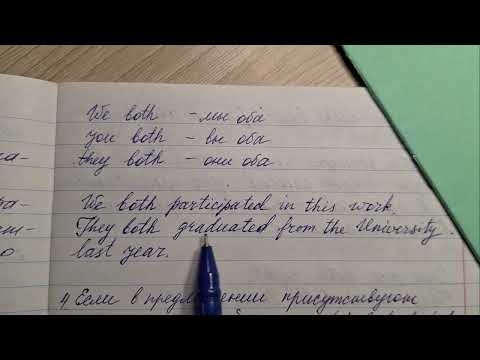 We both - мы оба
you both - вы оба
they both - они оба
We both participated in this work.
They both graduated from the University
last year.
4) Если в предложении присутствуют